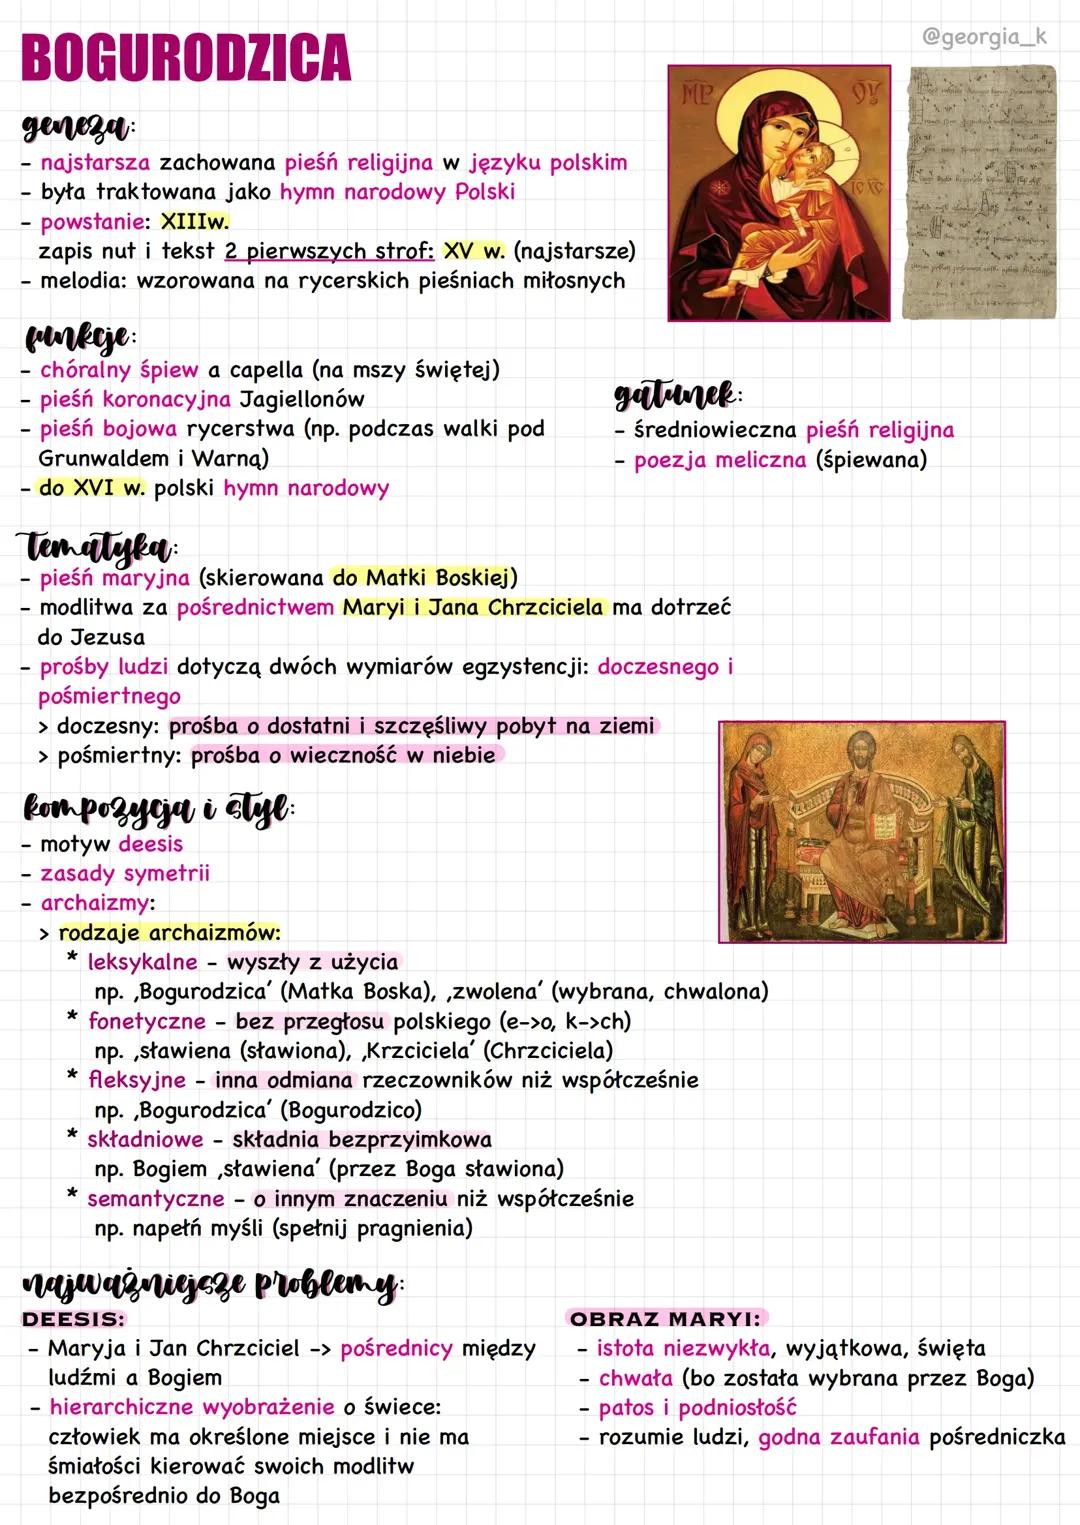 BOGURODZICA
@georgia_k
geneza:
- najstarsza zachowana pieśń religijna w języku polskim
- była traktowana jako hymn narodowy Polski
- powstanie: XIIIw.
zapis nut i tekst 2 pierwszych strof: XV w. (najstarsze)
- melodia: wzorowana na rycerskich pieśniach miłosnych
funkcje:
- chóralny śpiew a capella (na mszy świętej)
- pieśń koronacyjna Jagiellonów
- pieśń bojowa rycerstwa (np. podczas walki pod
Grunwaldem i Warną)
- do XVI w. polski hymn narodowy
gatunek:
- średniowieczna pieśń religijna
- poezja meliczna (śpiewana)
Tematyka:
- pieśń maryjna (skierowana do Matki Boskiej)
- modlitwa za pośrednictwem Maryi i Jana Chrzciciela ma dotrzeć
do Jezusa
- prośby ludzi dotyczą dwóch wymiarów egzystencji: doczesnego i
pośmiertnego
> doczesny: prośba o dostatni i szczęśliwy pobyt na ziemi
> pośmiertny: prośba o wieczność w niebie
kompozycja i styl:
- motyw deesis
- zasady symetrii
- archaizmy:
> rodzaje archaizmów:
* leksykalne - wyszły z użycia
np. ‚Bogurodzica’ (Matka Boska), ‚zwolena’ (wybrana, chwalona)
* fonetyczne - bez przegłosu polskiego (e->o, k->ch)
np. ‚sławiena (sławiona), ‚Krzciciela’ (Chrzciciela)
* fleksyjne - inna odmiana rzeczowników niż współcześnie
np. ‚Bogurodzica’ (Bogurodzico)
* składniowe - składnia bezprzyimkowa
np. Bogiem ‚sławiena’ (przez Boga sławiona)
* semantyczne - o innym znaczeniu niż współcześnie
np. napełń myśli (spełnij pragnienia)
najważniejsze problemy:
DEESIS:
- Maryja i Jan Chrzciciel -> pośrednicy między
ludźmi a Bogiem
- hierarchiczne wyobrażenie o świece:
człowiek ma określone miejsce i nie ma
śmiałości kierować swoich modlitw
bezpośrednio do Boga
OBRAZ MARYI:
- istota niezwykła, wyjątkowa, święta
- chwała (bo została wybrana przez Boga)
- patos i podniosłość
- rozumie ludzi, godna zaufania pośredniczka